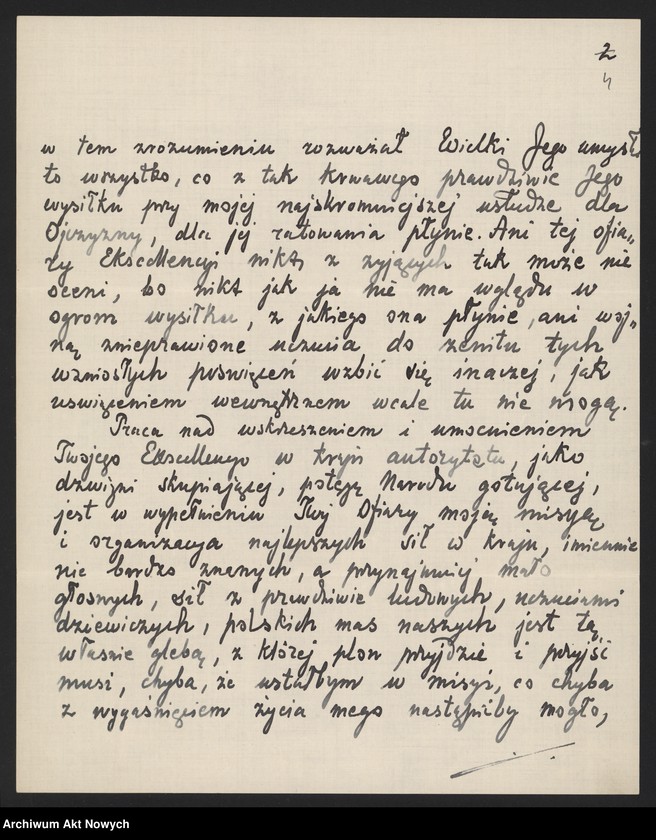 2
4
w tem zrozumieniu rozważał Wielki Jego umysł
to wszystko, co z tak krwawego prawdziwie Jego
wysiłku przy mojej najskromniejszej usłudze dla
Ojczyzny, dla jej ratowania płynie. Ani tej ofia„
ry Ekscellencyi nikt z żyjących tak może nie
oceni, bo nikt jak ja nie ma wglądu w
ogrom wysiłku, z jakiego ona płynie, ani woj„
ną znieprawione uczucia do zenitu tych
wzniosłych poświęceń wzbić się inaczej, jak
uświęceniem wewnętrznem wcale tu nie mogą.
Praca nad wskrzeszeniem i umocnieniem
Twojego Ekscellencyo w kraju autorytetu, jako
dźwigni skupiającej, potęgę Narodu gotującej,
jest w wypełnieniu Twej Ofiary mogą misyą
i organizacya najlepszych sił w kraju, imiennie
nie bardzo znanych, a przynajmniej mało
głośnych, sił z prawdziwie ludowych, uczuciami
dziewiczych, polskich mas naszych jest tą
właśnie glebą, z której plon przyjdzie i przyjść
musi, chyba, że ustałbym w misyi, co chyba
z wygaśnięciem życia mego nastąpićby mogło,
Archiwum Akt Nowych